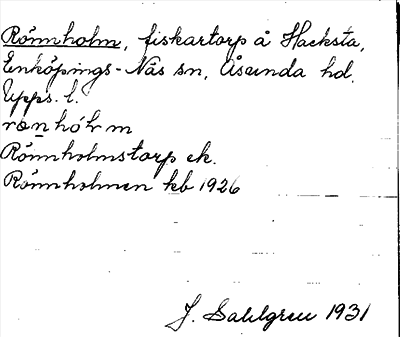 Rönnholm, fiskartorp å Hacksta,
Enköpings-Näs sn, Åsunda hd,
Upps. l.
rönhólm
Rönnholmstorp ek.
Rönnholmen kb 1926
J. Sahlgren 1931